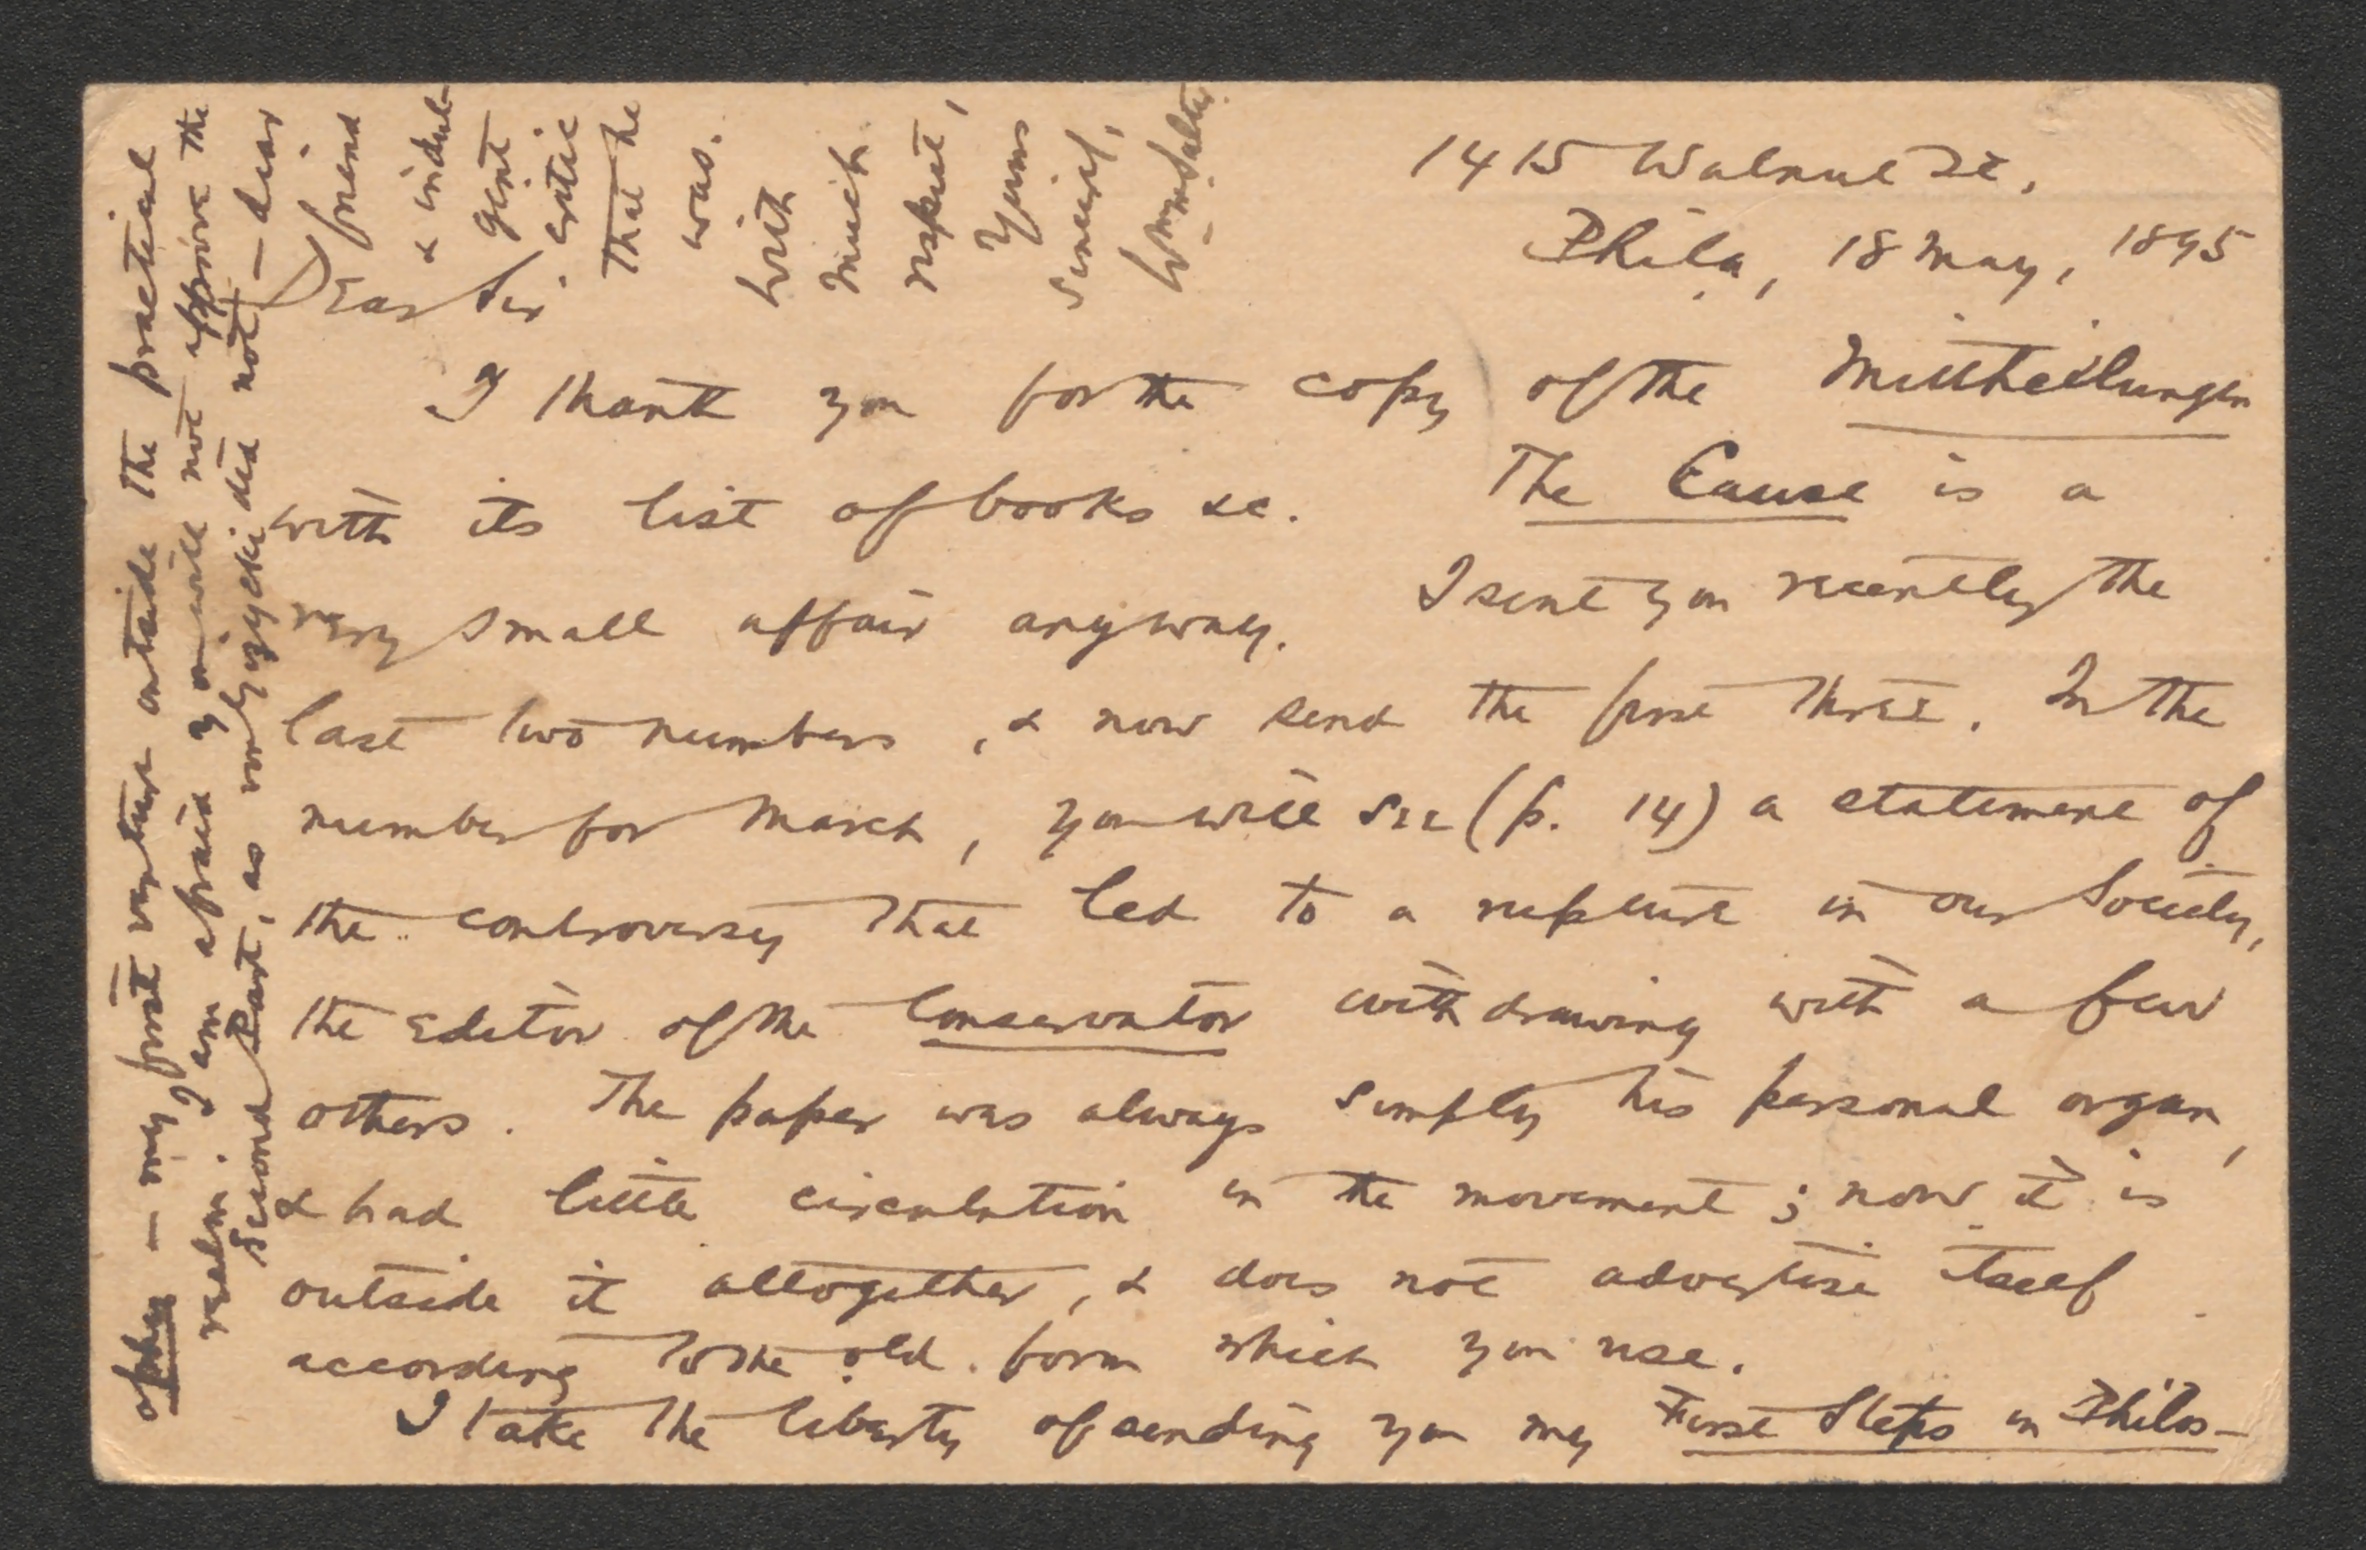 1415 Walnut St.,
Phila., 18 May, 1895
Dear Sir.
I thank you for the copy of the Mittheilungen
with its list of books &c. The Cause is a
very small affair anyway. I sent you recently the
last two numbers, & now send the first three. In the
number for March, you will see (p. 14) a statement of
the controversy that led to a rupture in our Society,
the Editor of the Conservator withdrawing with a few
others. The paper was always simply his personal organ,
& had little circulation in the movement; now it is
outside it altogether, & does not advertise itself
according to the old form which you use.
I take the liberty of sending you my First Steps in Philos-
ophy — my first venture outside the practical
realm. I am afraid you will not approve the
Second Part, as von Gizycki did not — dear
friend
& indul-
gent
critic
that he
was.
With
much
respect,
Yours
sincerely,
Wm. M. Salter